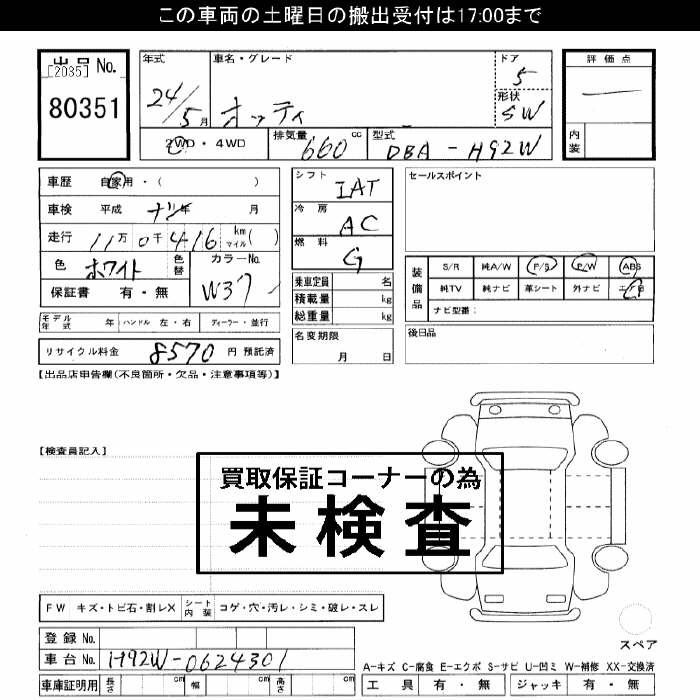 この車両の土曜日の搬出受付は17:00まで
出品No.
[2035]
80351
年式 車名・グレード ドア 評価点
24/5月 オッティ 5
形状
SW
2WD・4WD 排気量 660 cc 型式 DBA-H92W 内装
車歴 自家用・( )
車検 平成 ナシ年 月
走行 11万0千416 km マイル( )
色 ホワイト 色替 カラーNo. W37
保証書 有・無
モデル年式 年 ハンドル 左・右 ディーラー・並行
リサイクル料金 8570 円 預託済
シフト IAT
冷房 AC
燃料 G
乗車定員 名
積載量 kg
総重量 kg
名変期限 月 日
セールスポイント
装備品 S/R 純A/W P/S P/W ABS
純TV 純ナビ 革シート 外ナビ エアB
ナビ型番:
後日品
【出品店申告欄(不良箇所・欠品・注意事項等)】
【検査員記入】
買取保証コーナーの為
未検査
FW キズ・トビ石・割レX シート内装 コゲ・穴・汚レ・シミ・破レ・スレ
スペア
登録No.
車台No. H92W-0624301
A-キズ C-腐食 E-エクボ S-サビ U-凹ミ W-補修 XX-交換済
車庫証明用 長さ cm 幅 cm 高さ cm 工具 有・無 ジャッキ 有・無